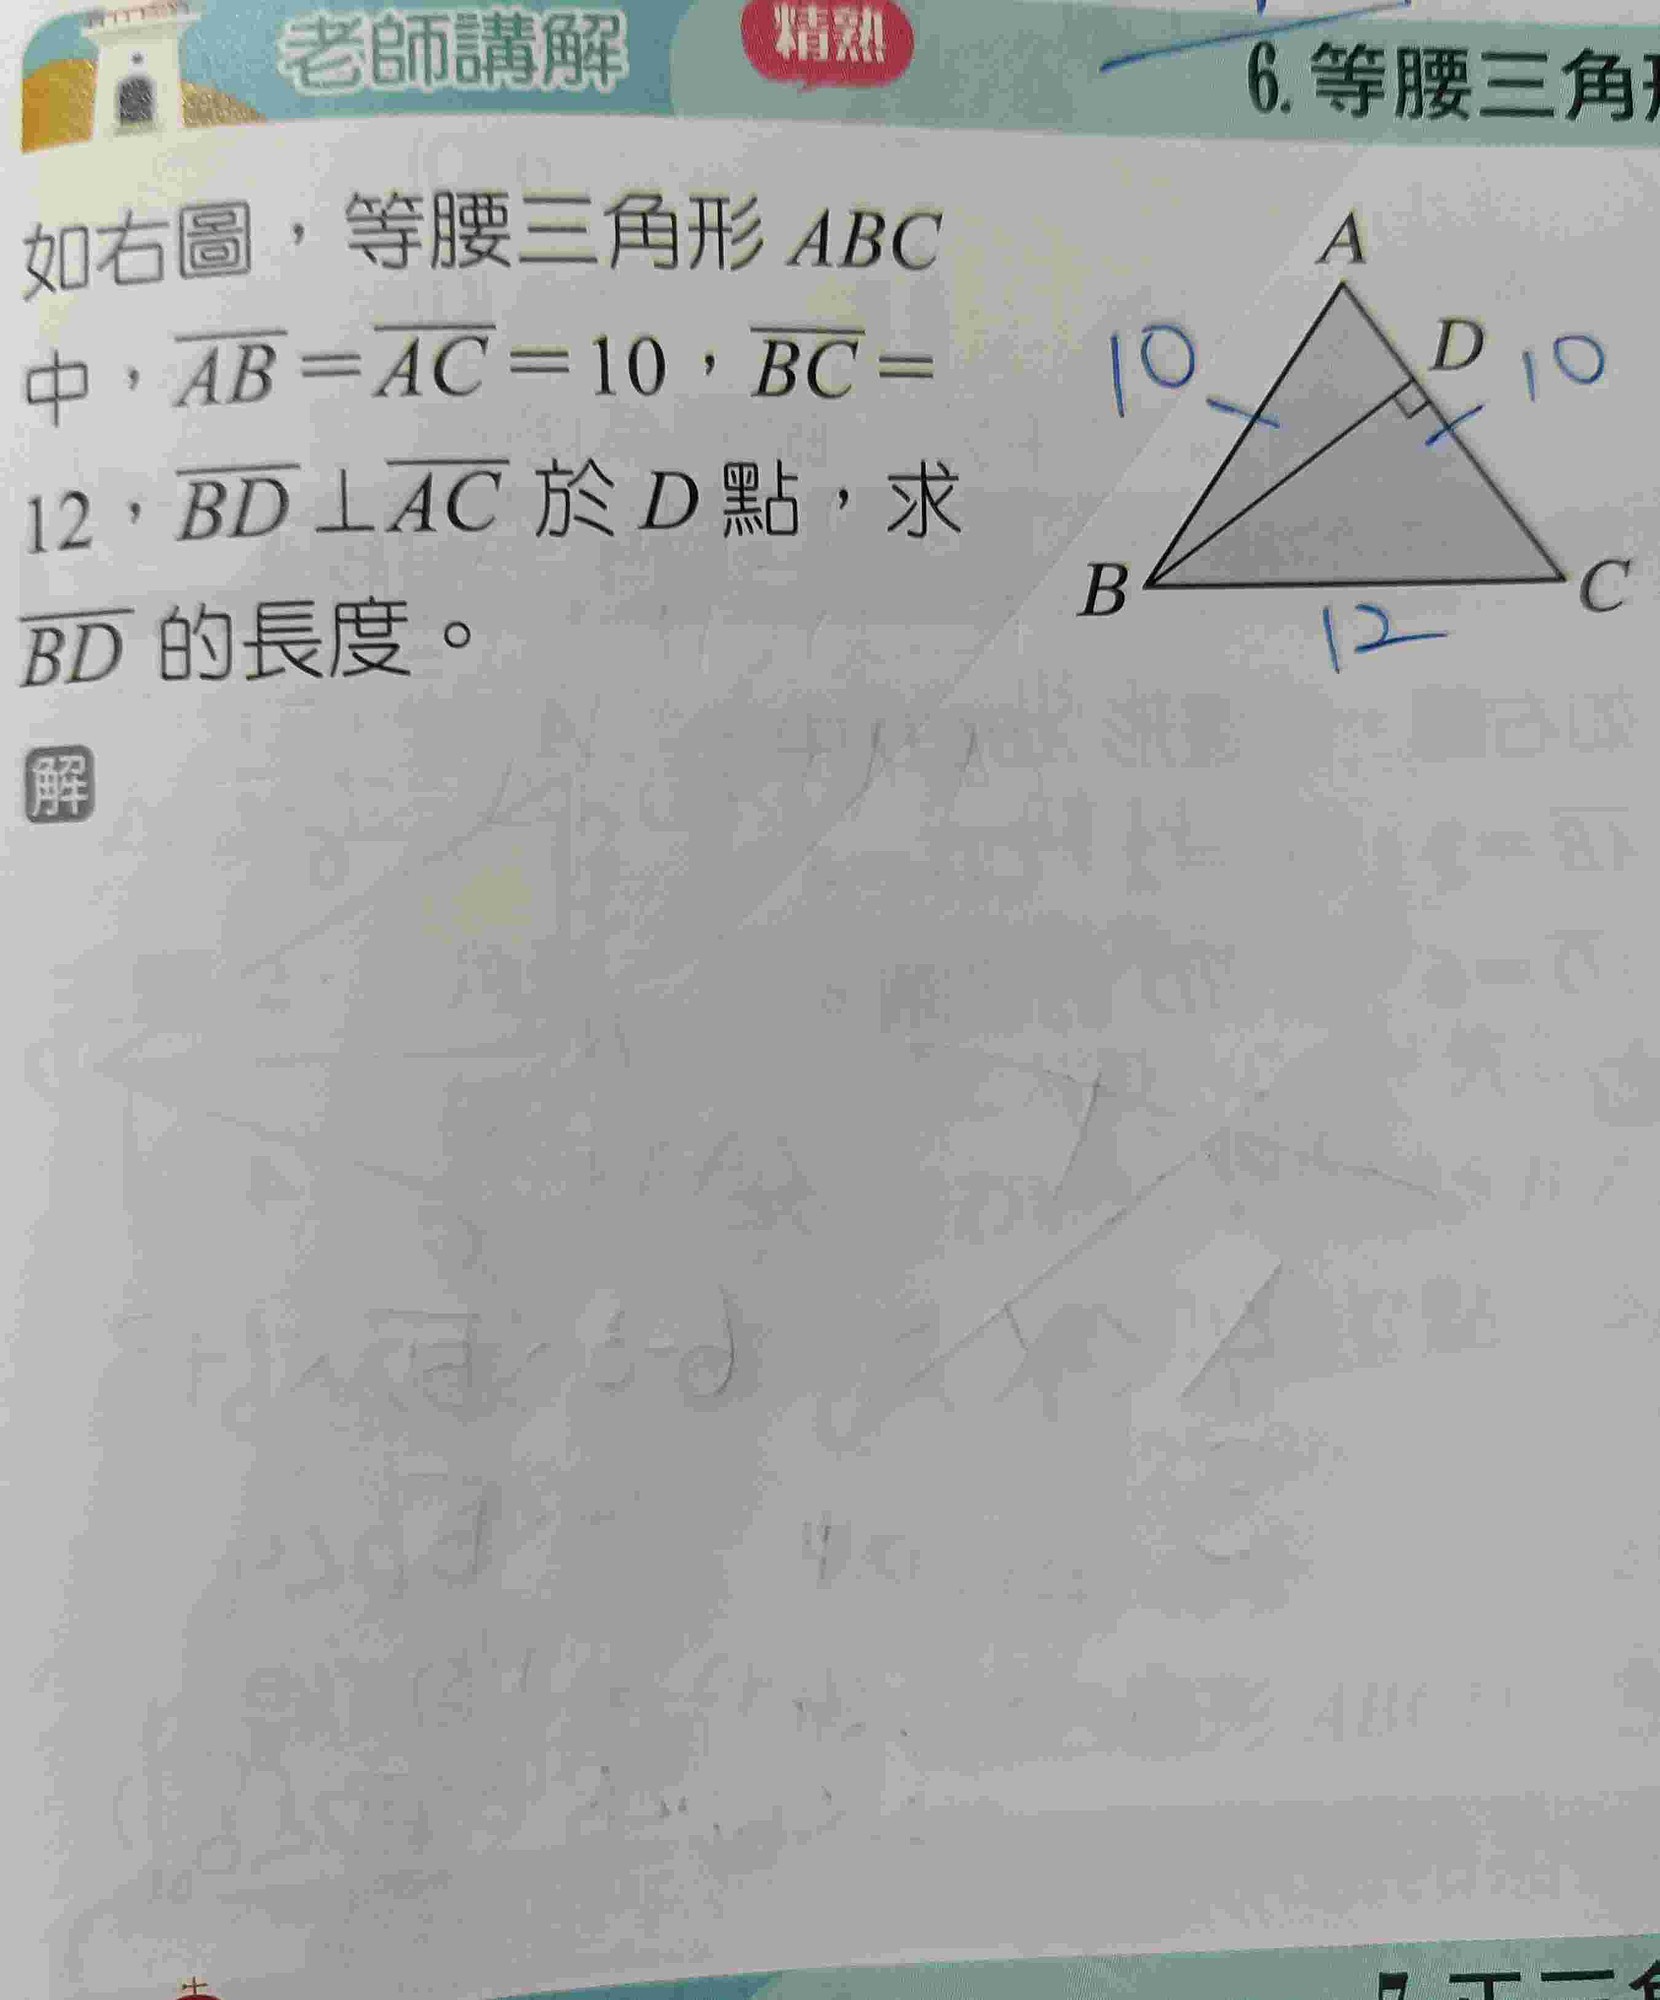 老師講解 精熟 6. 等腰三角
如右圖,等腰三角形 ABC
中,AB=AC=10,BC=
12,BD⊥AC 於 D 點,求
BD 的長度。
A
D
10
10
B
C
12
解